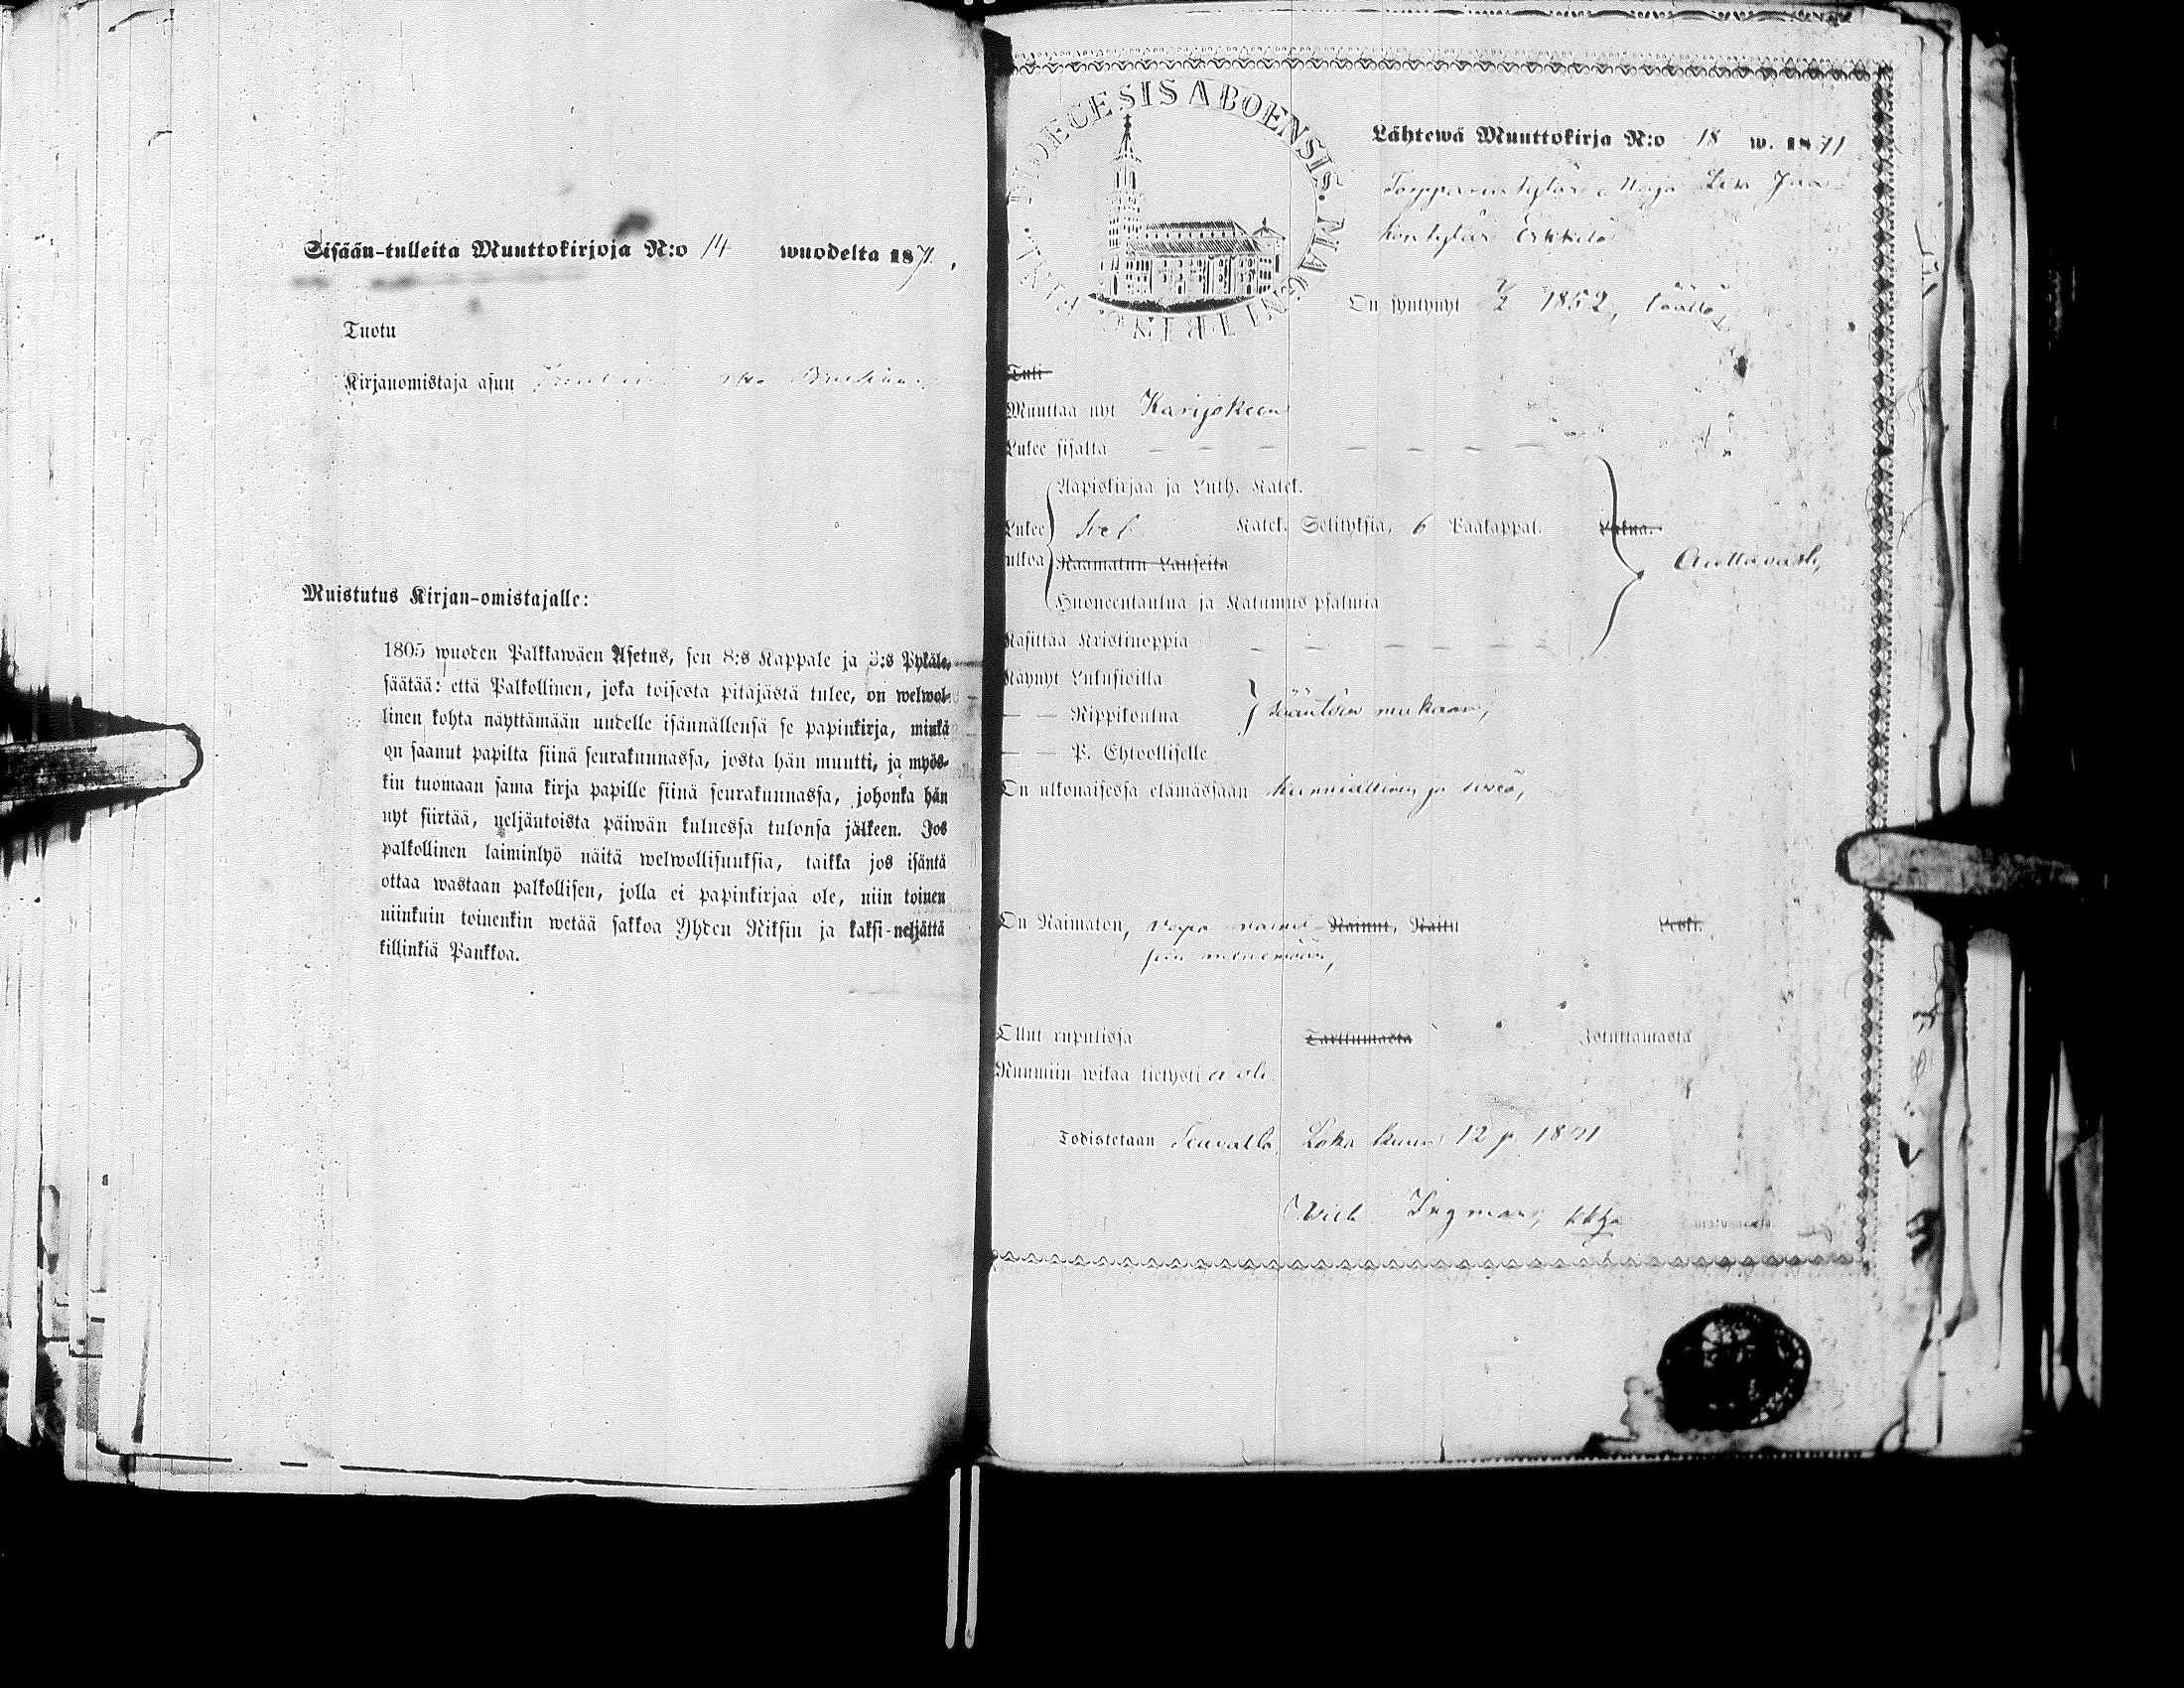 Sisään-tulleita Muuttokirjoja N:o 14 wuodelta 1871.
Tuotu
Kirjanomistaja asuu
Muistutus Kirjan-omistajalle:
1805 wuoden Palkkawäen Asetus, sen 8:s Kappale ja 3:s Pykälä,
säätää: että Palkollinen, joka toisesta pitäjästä tulee, on welwol-
linen kohta näyttämään uudelle isännällensä se papinkirja, minkä
on saanut papilta siinä seurakunnassa, josta hän muutti, ja myös-
kin tuomaan sama kirja papille siinä seurakunnassa, johonka hän
nyt siirtää, neljäntoista päiwän kuluessa tulonsa jälkeen. Jos
palkollinen laiminlyö näitä welwollisuuksia, taikka jos isäntä
ottaa wastaan palkollisen, jolla ei papinkirjaa ole, niin toinen
niinkuin toinenkin wetää sakkoa Yhden Riksin ja kaksi-neljättä
killinkiä Pankkoa.
DIOECESIS ABOENSIS. MAG.
Lähtewä Muuttokirja N:o 18 w. 1871
Torpparin tytär Maja Lisa Juha
kön tytär Erkkilä
On syntynyt 1852, täällä,
Tuli
Muuttaa nyt Karijokeen
Lukee sisältä — — — — — — —
Aapiskirjaa ja Luth. Katek.
Lukee Katek. Selityksiä, 6 Pääkappal. Lukua.
ulkoa Raamatun Lauseita Auttavasti,
Huoneentaulua ja Katumus psalmia
Käsittää Kristinoppia — — — — — —
Käynyt Lukusioilla
— — Rippikoulua säännön mukaan,
— — P. Ehtoollisella
On ulkonaisessa elämässään kunniallinen ja siveä,
On Naimaton, vapa Nainut, Naitu Leski.
sen menemään,
Ollut rupulissa Tarttumasta Istuttamasta
Ruumiin wikaa tietysti ei ole.
Todistetaan Teuvalla, Loka kuun 12 p. 1871
Wilh. Ingman, kkhra